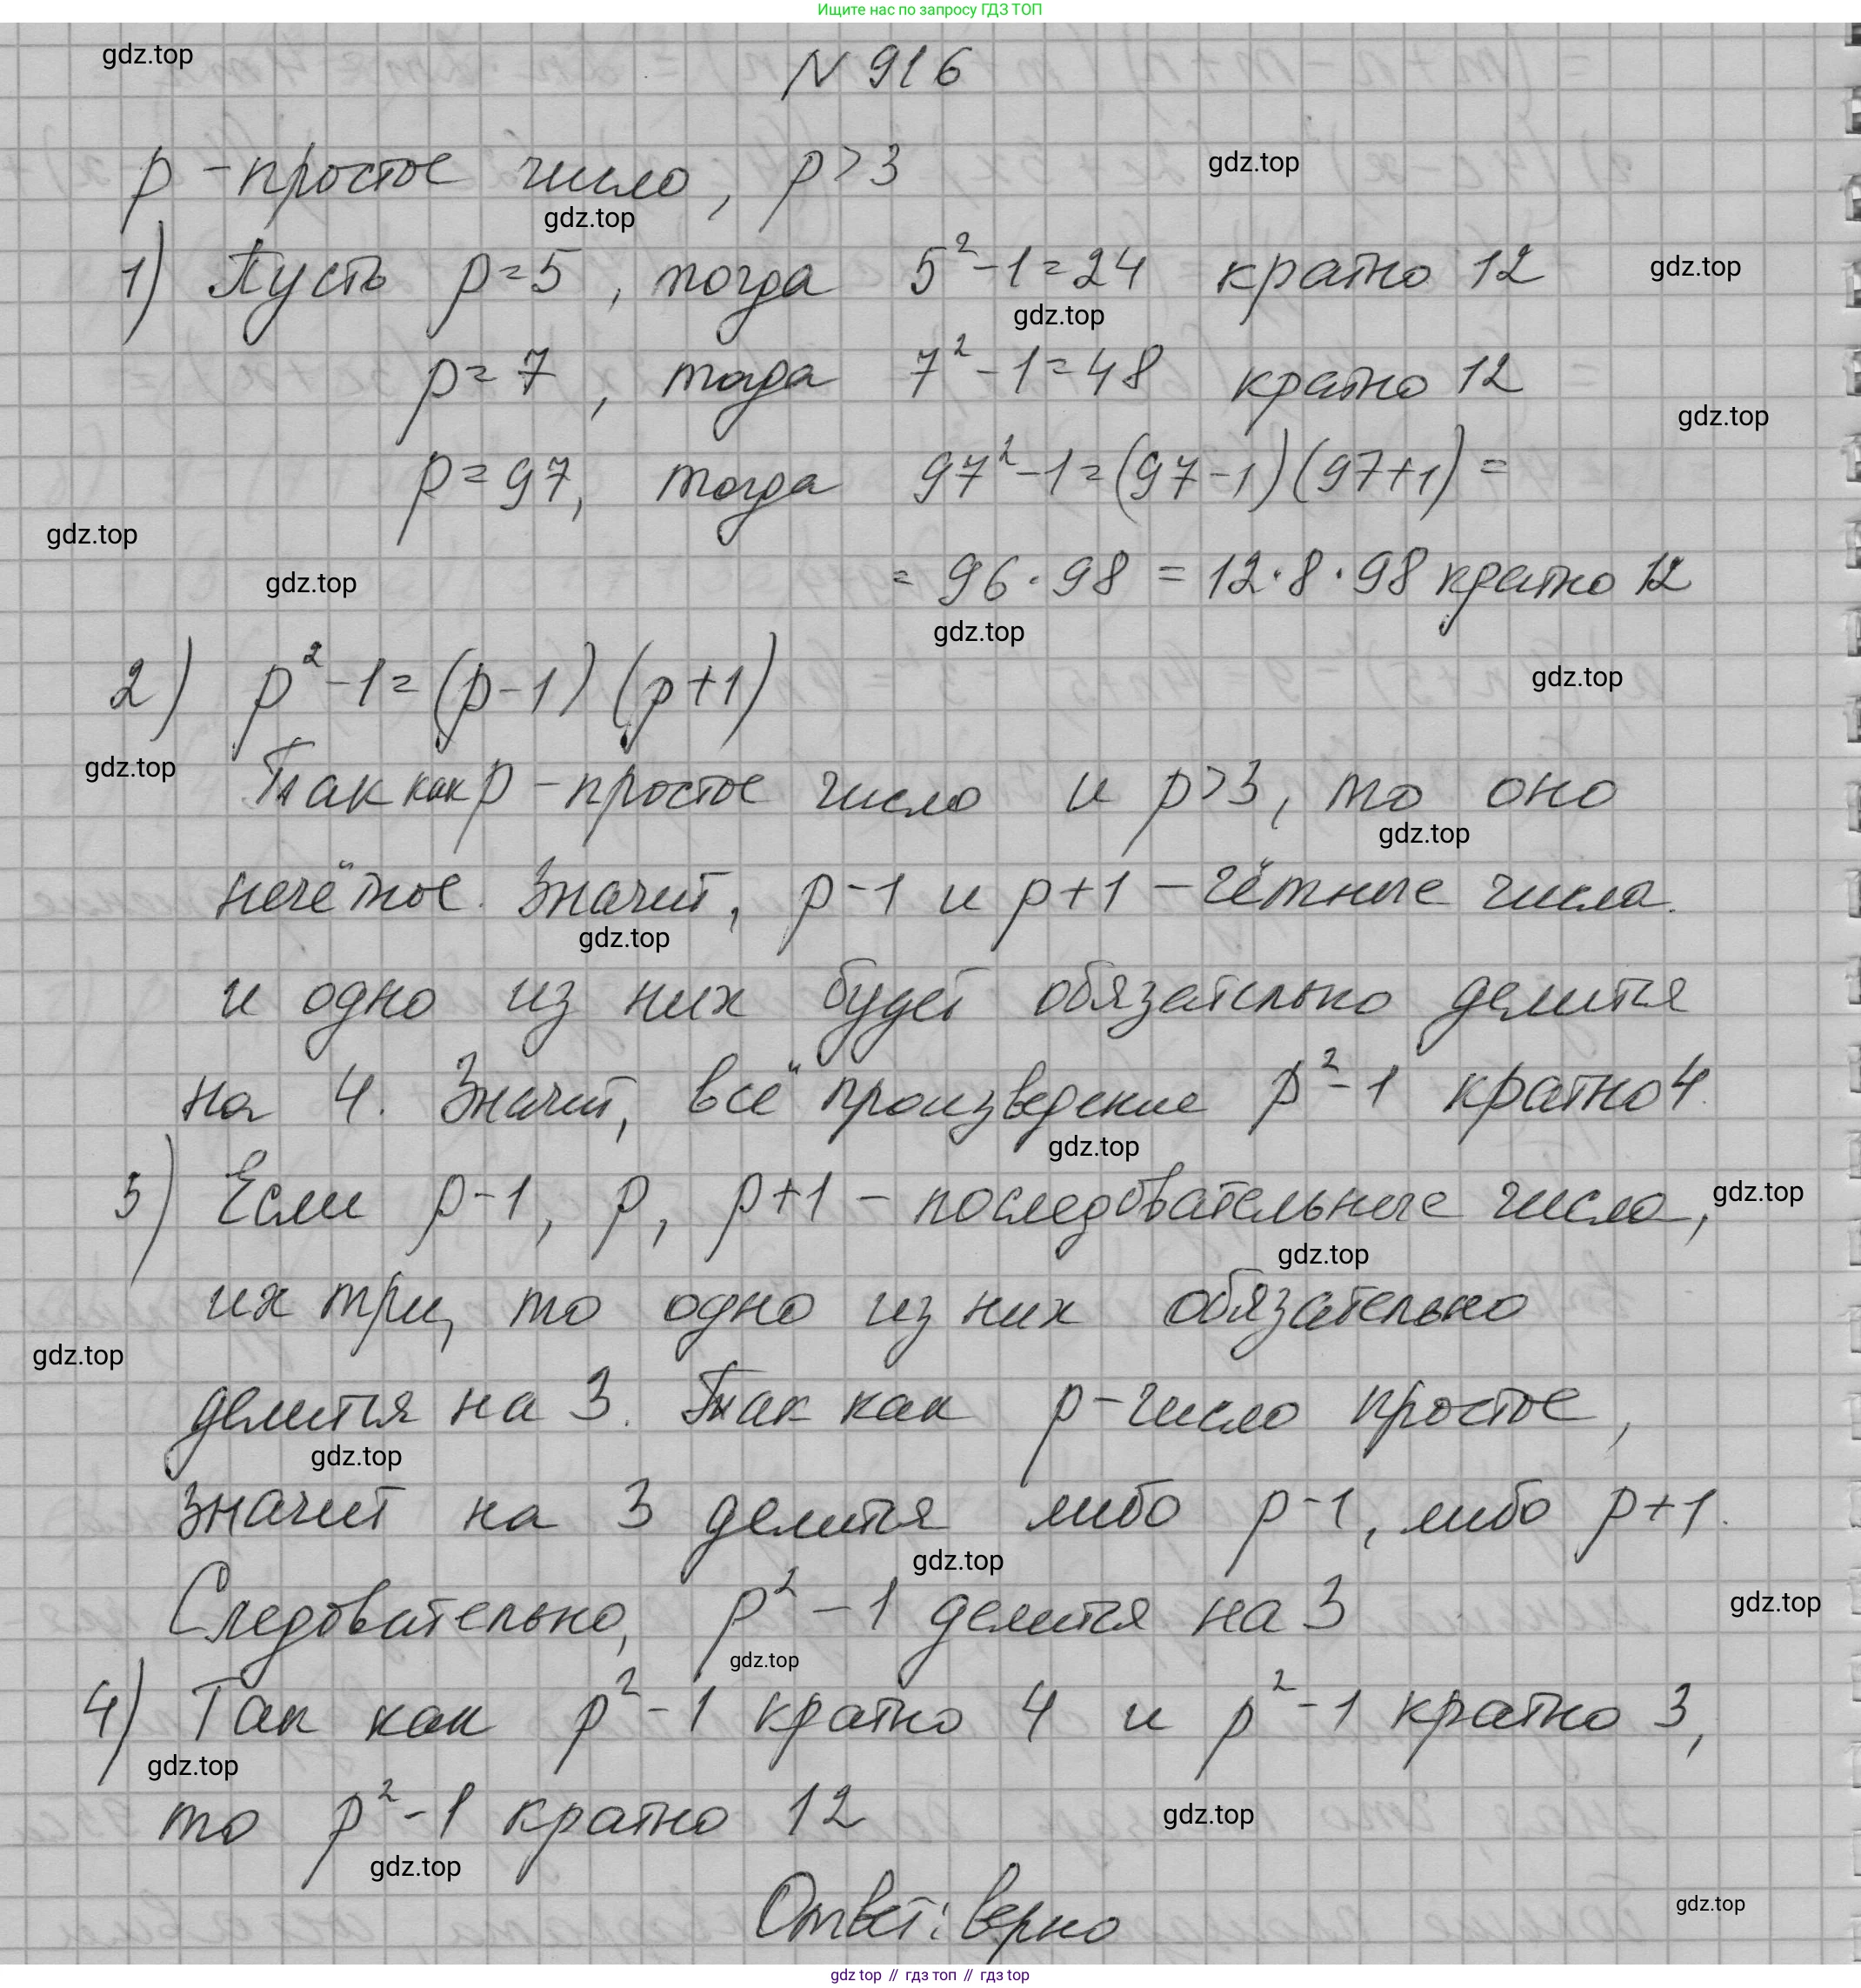 Ищите нас по запросу ГДЗ ТОП
gdz.top
N 916
p - простое число, p > 3
gdz.top
gdz.top
1) Пусть p = 5, тогда 5² - 1 = 24 кратно 12
gdz.top
gdz.top
p = 7, тогда 7² - 1 = 48 кратно 12
gdz.top
p = 97, тогда 97² - 1 = (97 - 1)(97 + 1) =
gdz.top
= 96 · 98 = 12 · 8 · 98 кратно 12
gdz.top
gdz.top
2) p² - 1 = (p - 1)(p + 1)
gdz.top
gdz.top
Так как p - простое число и p > 3, то оно
gdz.top
нечётное. Значит, p - 1 и p + 1 - чётные числа.
gdz.top
и одно из них будет обязательно делится
на 4. Значит, всё произведение p² - 1 кратно 4.
gdz.top
3) Если p - 1, p, p + 1 - последовательные числа,
gdz.top
gdz.top
их три, то одно из них обязательно
gdz.top
делится на 3. Так как p - число простое,
gdz.top
значит на 3 делится либо p - 1, либо p + 1.
gdz.top
Следовательно, p² - 1 делится на 3
gdz.top
gdz.top
4) Так как p² - 1 кратно 4 и p² - 1 кратно 3,
gdz.top
то p² - 1 кратно 12
gdz.top
gdz.top
Ответ: верно
gdz.top
gdz top // гдз топ // гдз top